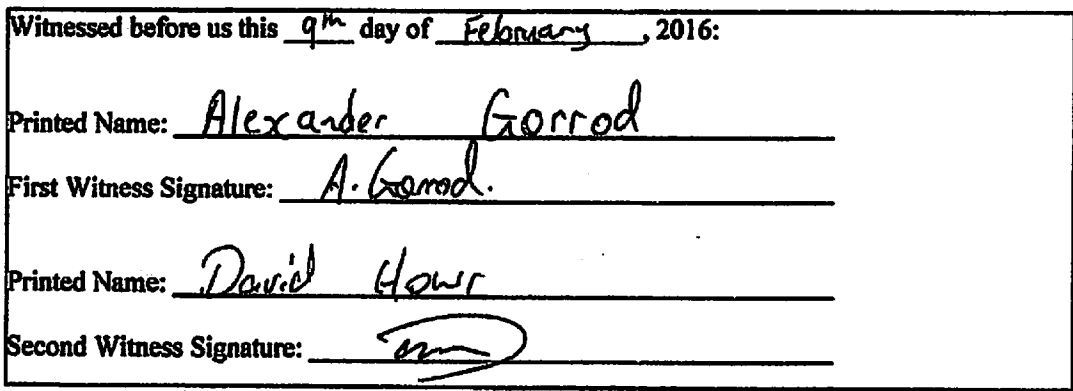 Witnessed before us this 9th day of February, 2016:
Printed Name: Alexander Gorrod
First Witness Signature: A. Gorrod.
Printed Name: David
Second Witness Signature: